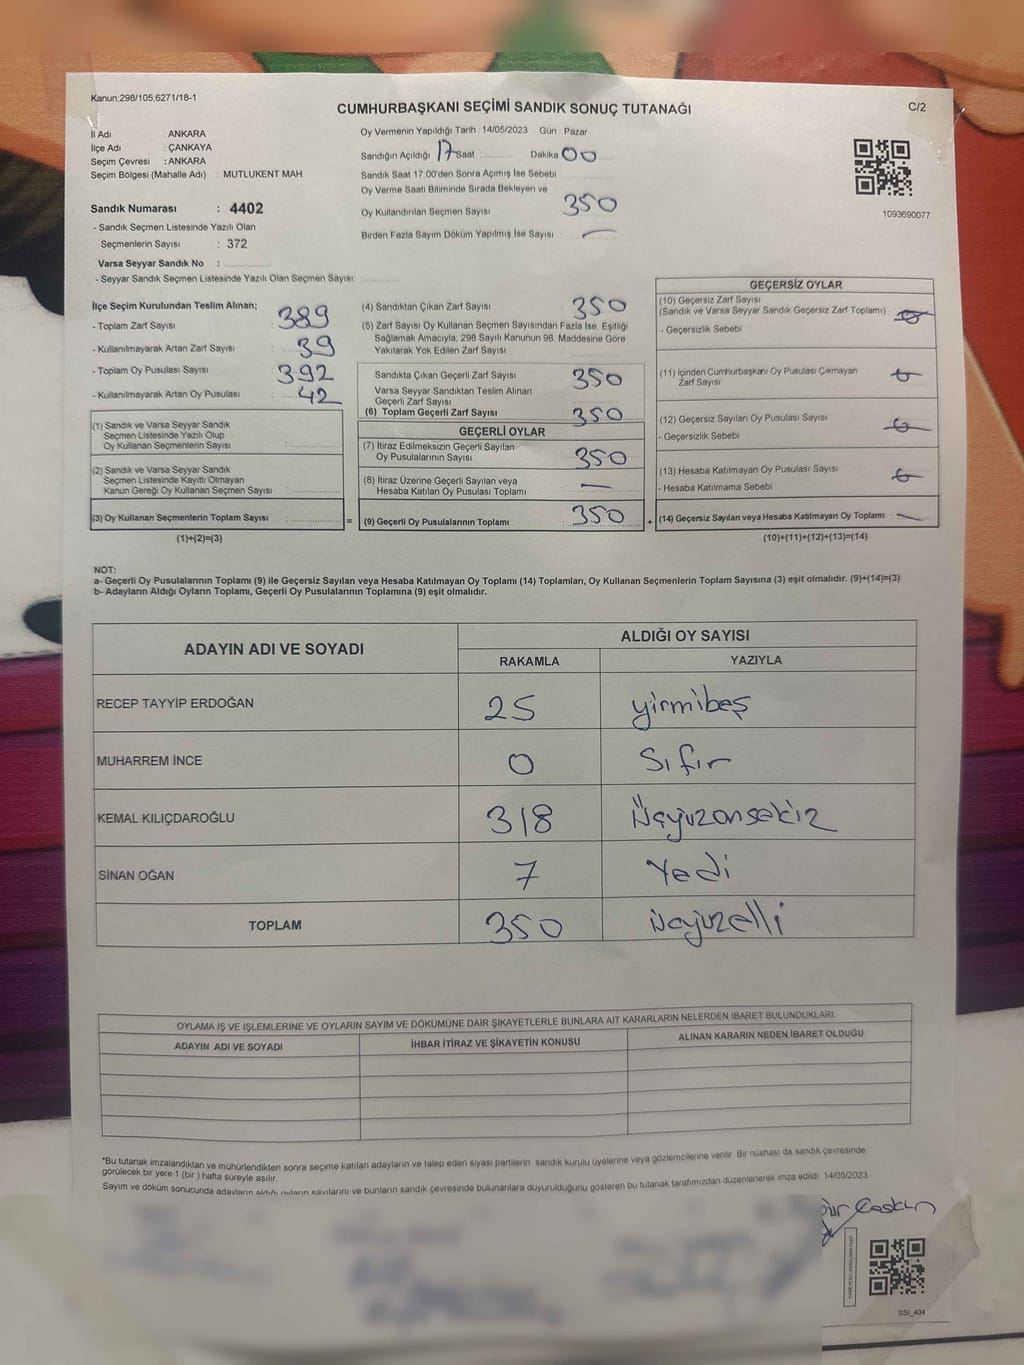 Kanun;298/105;6271/18-1
CUMHURBAŞKANI SEÇİMİ SANDIK SONUÇ TUTANAĞI
C/2
İl Adı : ANKARA
İlçe Adı : ÇANKAYA
Seçim Çevresi : ANKARA
Seçim Bölgesi (Mahalle Adı) : MUTLUKENT MAH.
Sandık Numarası : 4402
- Sandık Seçmen Listesinde Yazılı Olan
Seçmenlerin Sayısı : 372
Varsa Seyyar Sandık No :
- Seyyar Sandık Seçmen Listesinde Yazılı Olan Seçmen Sayısı:
Oy Vermenin Yapıldığı Tarih : 14/05/2023 Gün : Pazar
Sandığın Açıldığı 17 Saat Dakika 00
Sandık Saat 17:00'den Sonra Açımış İse Sebebi
Oy Verme Saati Bitiminde Sırada Bekleyen ve
Oy Kullandırılan Seçmen Sayısı 350
Birden Fazla Sayım Döküm Yapılmış İse Sayısı : —
1093690077
İlçe Seçim Kurulundan Teslim Alınan;
- Toplam Zarf Sayısı 389
- Kullanılmayarak Artan Zarf Sayısı : 39
- Toplam Oy Pusulası Sayısı 392
- Kullanılmayarak Artan Oy Pusulası : 42
(1) Sandık ve Varsa Seyyar Sandık
Seçmen Listesinde Yazılı Olup
Oy Kullanan Seçmenlerin Sayısı :
(2) Sandık ve Varsa Seyyar Sandık
Seçmen Listesinde Kayıtlı Olmayan
Kanun Gereği Oy Kullanan Seçmen Sayısı :
(3) Oy Kullanan Seçmenlerin Toplam Sayısı :
(1)+(2)=(3)
(4) Sandıktan Çıkan Zarf Sayısı 350
(5) Zarf Sayısı Oy Kullanan Seçmen Sayısından Fazla İse, Eşitliği
Sağlamak Amacıyla; 298 Sayılı Kanunun 98. Maddesine Göre
Yakılarak Yok Edilen Zarf Sayısı
Sandıkta Çıkan Geçerli Zarf Sayısı 350
Varsa Seyyar Sandıktan Teslim Alınan
Geçerli Zarf Sayısı
(6) Toplam Geçerli Zarf Sayısı 350
GEÇERLİ OYLAR
(7) İtiraz Edilmeksizin Geçerli Sayılan
Oy Pusulalarının Sayısı 350
(8) İtiraz Üzerine Geçerli Sayılan veya
Hesaba Katılan Oy Pusulası Toplamı —
= (9) Geçerli Oy Pusulalarının Toplamı 350 +
GEÇERSİZ OYLAR
(10) Geçersiz Zarf Sayısı
(Sandık ve Varsa Seyyar Sandık Geçersiz Zarf Toplamı) :
- Geçersizlik Sebebi
(11) İçinden Cumhurbaşkanı Oy Pusulası Çıkmayan
Zarf Sayısı
(12) Geçersiz Sayılan Oy Pusulası Sayısı
- Geçersizlik Sebebi
(13) Hesaba Katılmayan Oy Pusulası Sayısı
- Hesaba Katılmama Sebebi
(14) Geçersiz Sayılan veya Hesaba Katılmayan Oy Toplamı : —
(10)+(11)+(12)+(13)=(14)
NOT:
a- Geçerli Oy Pusulalarının Toplamı (9) ile Geçersiz Sayılan veya Hesaba Katılmayan Oy Toplamı (14) Toplamları, Oy Kullanan Seçmenlerin Toplam Sayısına (3) eşit olmalıdır. (9)+(14)=(3)
b- Adayların Aldığı Oyların Toplamı, Geçerli Oy Pusulalarının Toplamına (9) eşit olmalıdır.
ADAYIN ADI VE SOYADI
ALDIĞI OY SAYISI
RAKAMLA YAZIYLA
RECEP TAYYİP ERDOĞAN 25 yirmibeş
MUHARREM İNCE 0 Sıfır
KEMAL KILIÇDAROĞLU 318 Üçyüzonsekiz
SİNAN OĞAN 7 Yedi
TOPLAM 350 üçyüzelli
OYLAMA İŞ VE İŞLEMLERİNE VE OYLARIN SAYIM VE DÖKÜMÜNE DAİR ŞİKAYETLERLE BUNLARA AİT KARARLARIN NELERDEN İBARET BULUNDUKLARI
ADAYIN ADI VE SOYADI İHBAR İTİRAZ VE ŞİKAYETİN KONUSU ALINAN KARARIN NEDEN İBARET OLDUĞU
*Bu tutanak imzalandıktan ve mühürlendikten sonra seçime katılan adayların ve talep eden siyasi partilerin sandık kurulu üyelerine veya gözlemcilerine verilir. Bir nüshası da sandık çevresinde
görülecek bir yere 1 (bir) hafta süreyle asılır.
Sayım ve döküm sonucunda adayların aldığı oyların sayılarını ve bunların sandık çevresinde bulunanlara duyurulduğunu gösteren bu tutanak tarafımızdan düzenlenerek imza edildi. 14/05/2023
Coskun
SSI_404